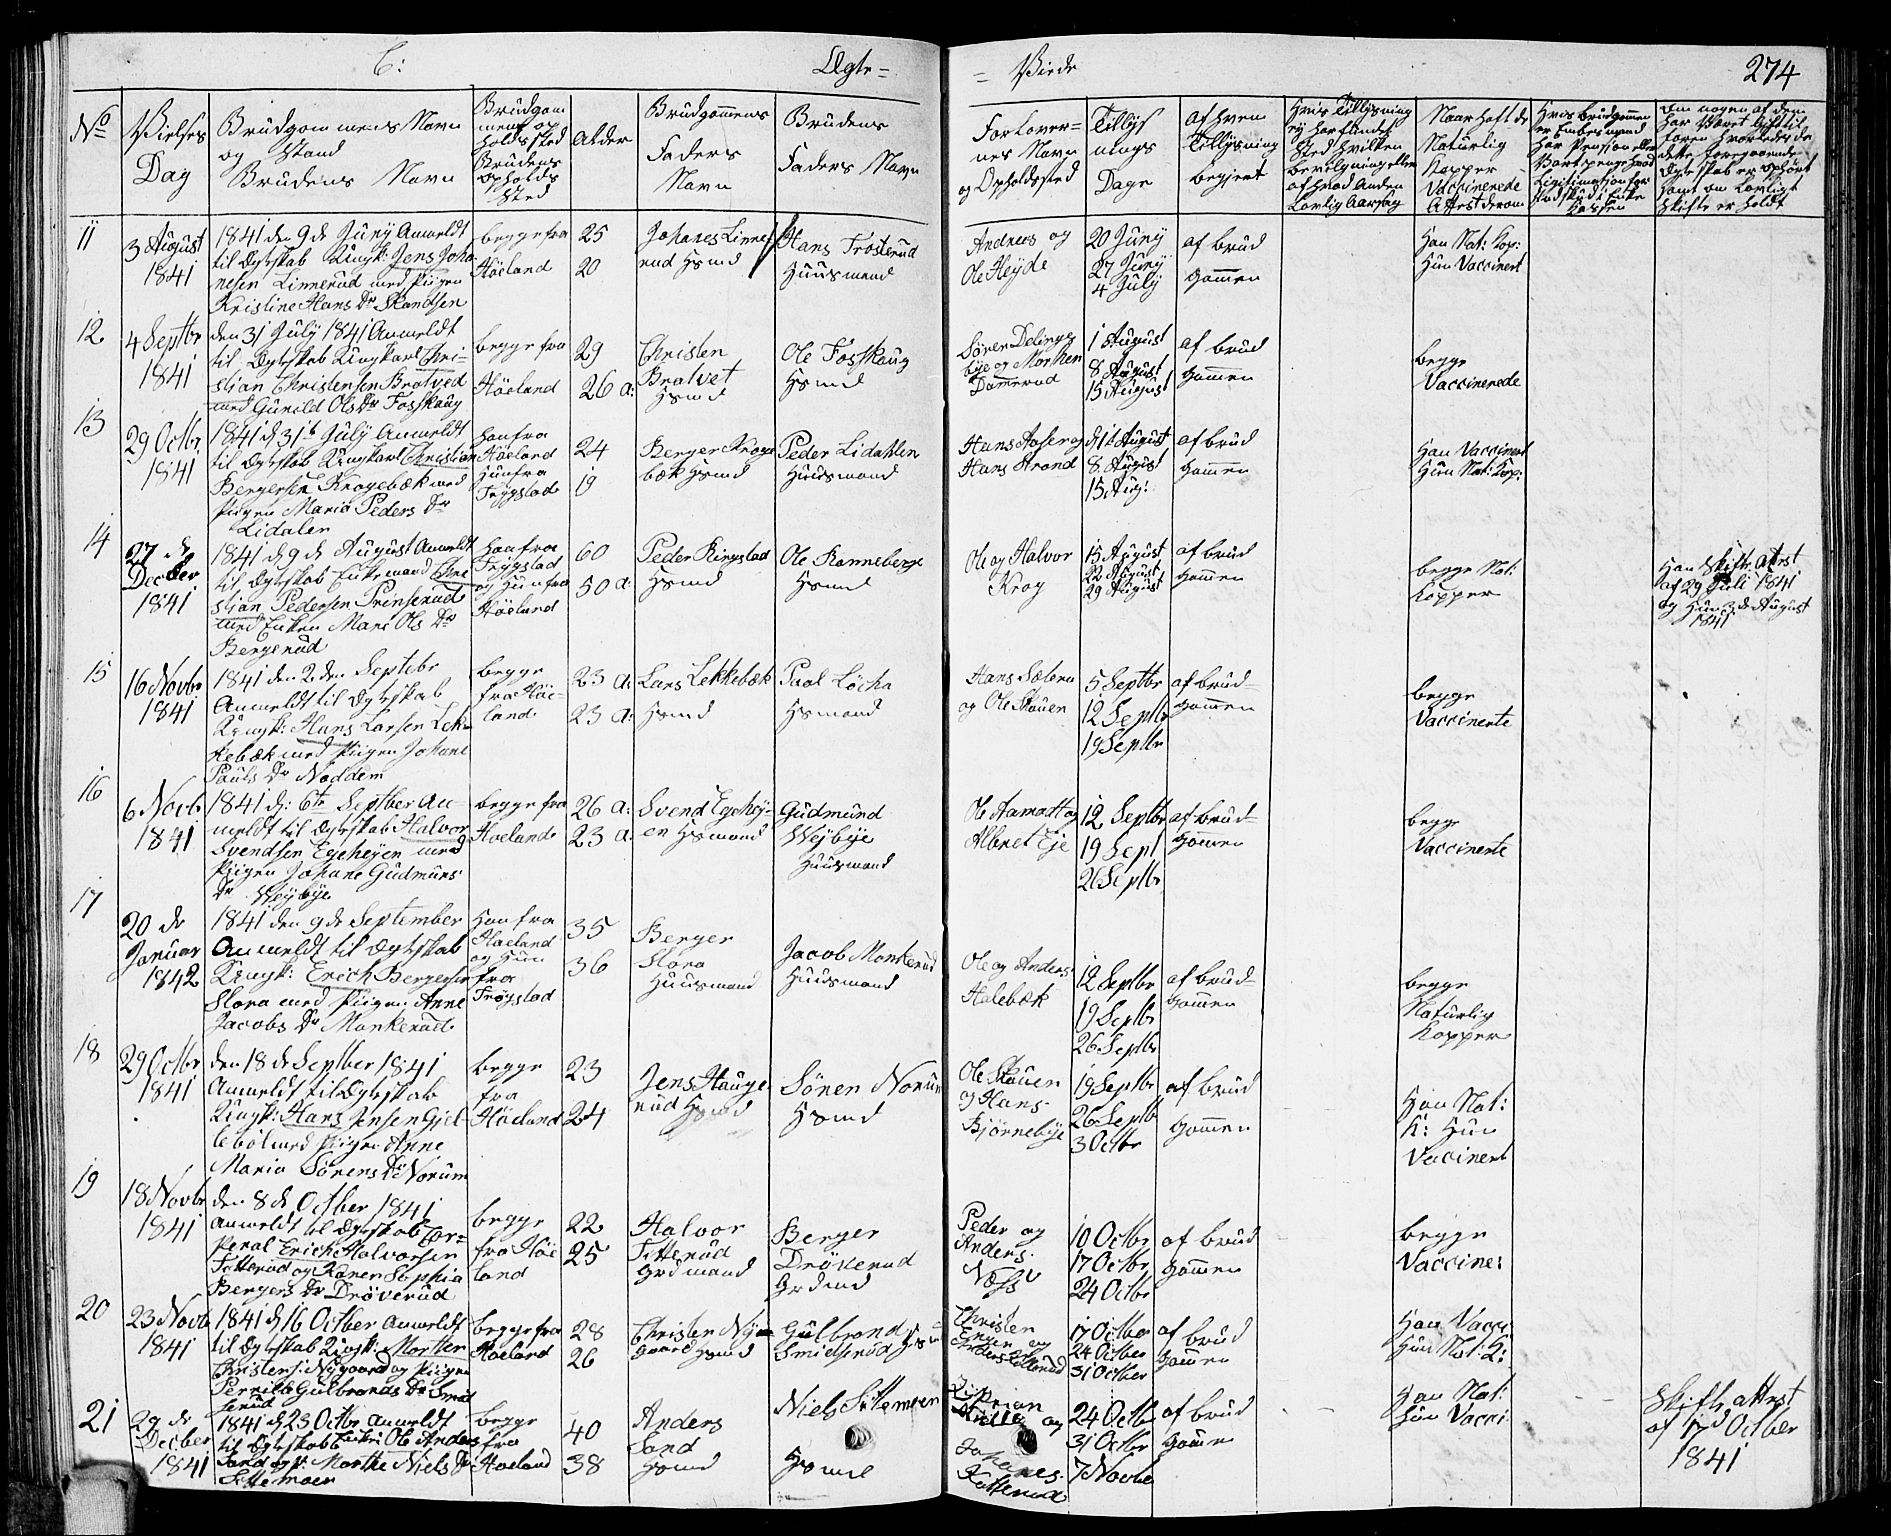 C:
Ægte=
= Viede
274
No
Vielses
Dag
Brudgommens Navn
og Stand
Brudens Navn
Brudgom
mens op
holdssted
Brudens
opholds
sted
Alder
Brudgommens
Faders
Navn
Brudens
Faders Navn
Forlover-
nes Navn
og Opholdssted
Tillys
nings
Dage
af hvem
Tillysning
begjert
Hvis Tillysning
ej har fundet
Sted hvilken
bevilgning eller
af hvad Anden
Lovlig Aarsag
Naar haft de
Naturlig
Kopper
Vaccinerede
Attest derom
11
3 August
1841
1841 den 9 de Juny Anmeldt
til Ægteskab Ungk: Jens Joha
nesen Linnerud med Pigen
Kristine Hans Dr Skandsen
begge fra
Höeland
25
20
Johanes Linne
rud Hsmd
Hans Frosterud
Huusmand
Andreas og
Ole Heyde
20 Juny
27 Juny
4 July
af brud
gommen
Han Nat: Kop:
Hun Vaccinert
12
4 Septbr
1841
den 31 July 1841 Anmeldt
til Ægteskab Ungkarl Chri-
stian Christensen Bratved
med Gunild Ols Dr Fosskaug
begge fra
Höeland
29
26 a:
Christen
Bratvet
Hsmd
Ole Fosskaug
Hsmd
Sören Delingg
bye og Morken
Damerud
1 August
8 August
15 August
af brud
gommen
begge
Vaccinerede
13
29 Octbr
1841
1841 d 31te July Anmeldt
til Ægteskab Ungkarl Christian
Bergersen Krogebæk med
Pigen Maria Peders Dr
Lidalen
Han fra
Höeland
Hun fra
Trygstad
24
19
Berger Kroge
bæk Hsmd
Peder Lidahlen
Huusmand
Hans Aaser og
Hans Strand
d 1te August
8 August
15 Aug:
af brud
gommen
Han Vaccinert
Hun Nat: Kop:
14
27 de
Decber
1841
1841 d 9 de August Anmeldt
til Ægteskab Enkemand Chri
stian Pedersen Prinserud
med Enken Mari Ols Dr
Bergerud
Han fra
Trygstad
og Hun fra
Höeland
60
50 a:
Peder Ringstad
Hsmd
Ole Ronneberg
Hsmd
Ole og Halvor
Krog
15 August
22 August
29 August
af brud
gommen
begge Nat:
Kopper
Han Skifte Attest
af 29 Juli 1841
og Hun 3 de August
1841
15
16 Novbr
1841
1841 den 2 den Septebr
Anmeldt til Ægteskab
Ungk: Hans Larsen Lek-
kebæk med Pigen Johane
Pauls Dr Noddem
begge
fra Höe-
land
23 a:
23 a:
Lars Lekkebæk
Hsmd
Paol Löcha
Hsmand
Hans Sæteren
og Ole Skauen
5 Septbr
12 Septbr
19 Septbr
af brud-
gommen
begge
Vaccinerte
16
6 Novb
1841
1841 d: 6te Septber An-
meldt til Ægteskab Halvor
Svendsen Egeheyen med
Pigen Johane Gudmuns
Dr Weybye
begge fra
Hoeland
26 a:
23 a:
Svend Egehey-
en Hsmand
Gudmund
Weybye
Huusmand
Ole Aamodt og
Albret Eje
12 Septbr
19 Sept
26 Septbr
af brud-
gommen
begge
Vaccinerte
17
20 de
Januar
1842
1841 den 9 de September
Anmeldt til Ægteskab
Ungk: Erich Bergersen
Slora med Pigen Anne
Jacobs Dr Monkerud
Han fra
Hoeland
og Hun
fra
Trögstad
35
36
Berger
Slora
Huusmand
Jacob Monkerud
Huusmand
Ole og Anders
Halebæk
12 Septbr
19 Septbr
26 Septbr
af brud-
gommen
begge
Naturlig
Kopper
18
29 Octbr
1841
den 18 de Septber 1841
Anmeldt til Ægteskab
Ungk: Hans Jensen Gjel-
leböl med Pigen Anne
Maria Sörens Dr Norum
begge
fra
Höeland
23
24
Jens Hauge
rud Hsmd
Sören Norum
Hsmd
Ole Skauen
og Hans
Bjørnebye
19 Septbr
26 Septb
3 Octbr
af brud
gommen
Han Nat:
K: Hun
Vaccinert
19
18 Novbr
1841
den 8 de October 1841
Anmeldt til Ægteskab Cor=
peral Erich Halvorsen
Fetterud og Karen Sophia
Bergers Dr Dröverud
begge
fra Höe
land
22
25
Halvor
Fetterud
Grdmand
Berger
Dröverud
Grdmd
Peder og
Anders
Næss
10 Octbr
17 Octbr
24 Octbr
af brud
gommen
begge
Vaccine:
20
23 Novb
1841
1841 d 16 Octber Anmeldt
til Ægteskab Ungk: Morten
Christens: Nygaard og Pigen
Pernille Gulbrands Dr Smit
serud
begge fra
Hoeland
28
26
Christen Ny=
gaard Hsmd
Gulbrand
Smidserud
Christen
17 Octbr
24 Octber
31 Octber
af brud
gommen
Han Vacci
Hun Nat: K:
21
29 de
Decber
1841
1841 d 23 Octbr Anmeldt
til Ægteskab Enkem: Ole Anders
Sand og P: Marthe Niels Dr
Settemoen
begge
fra
Hoeland
40
38
Anders
Sand
Hsmd
Niels Settemoen
Hsmd
24 Octb
31 Octb
7 Novbr
af brud
gommen
Han Nat:
Hun Vacci
Skifte attest
af 17 October
1841